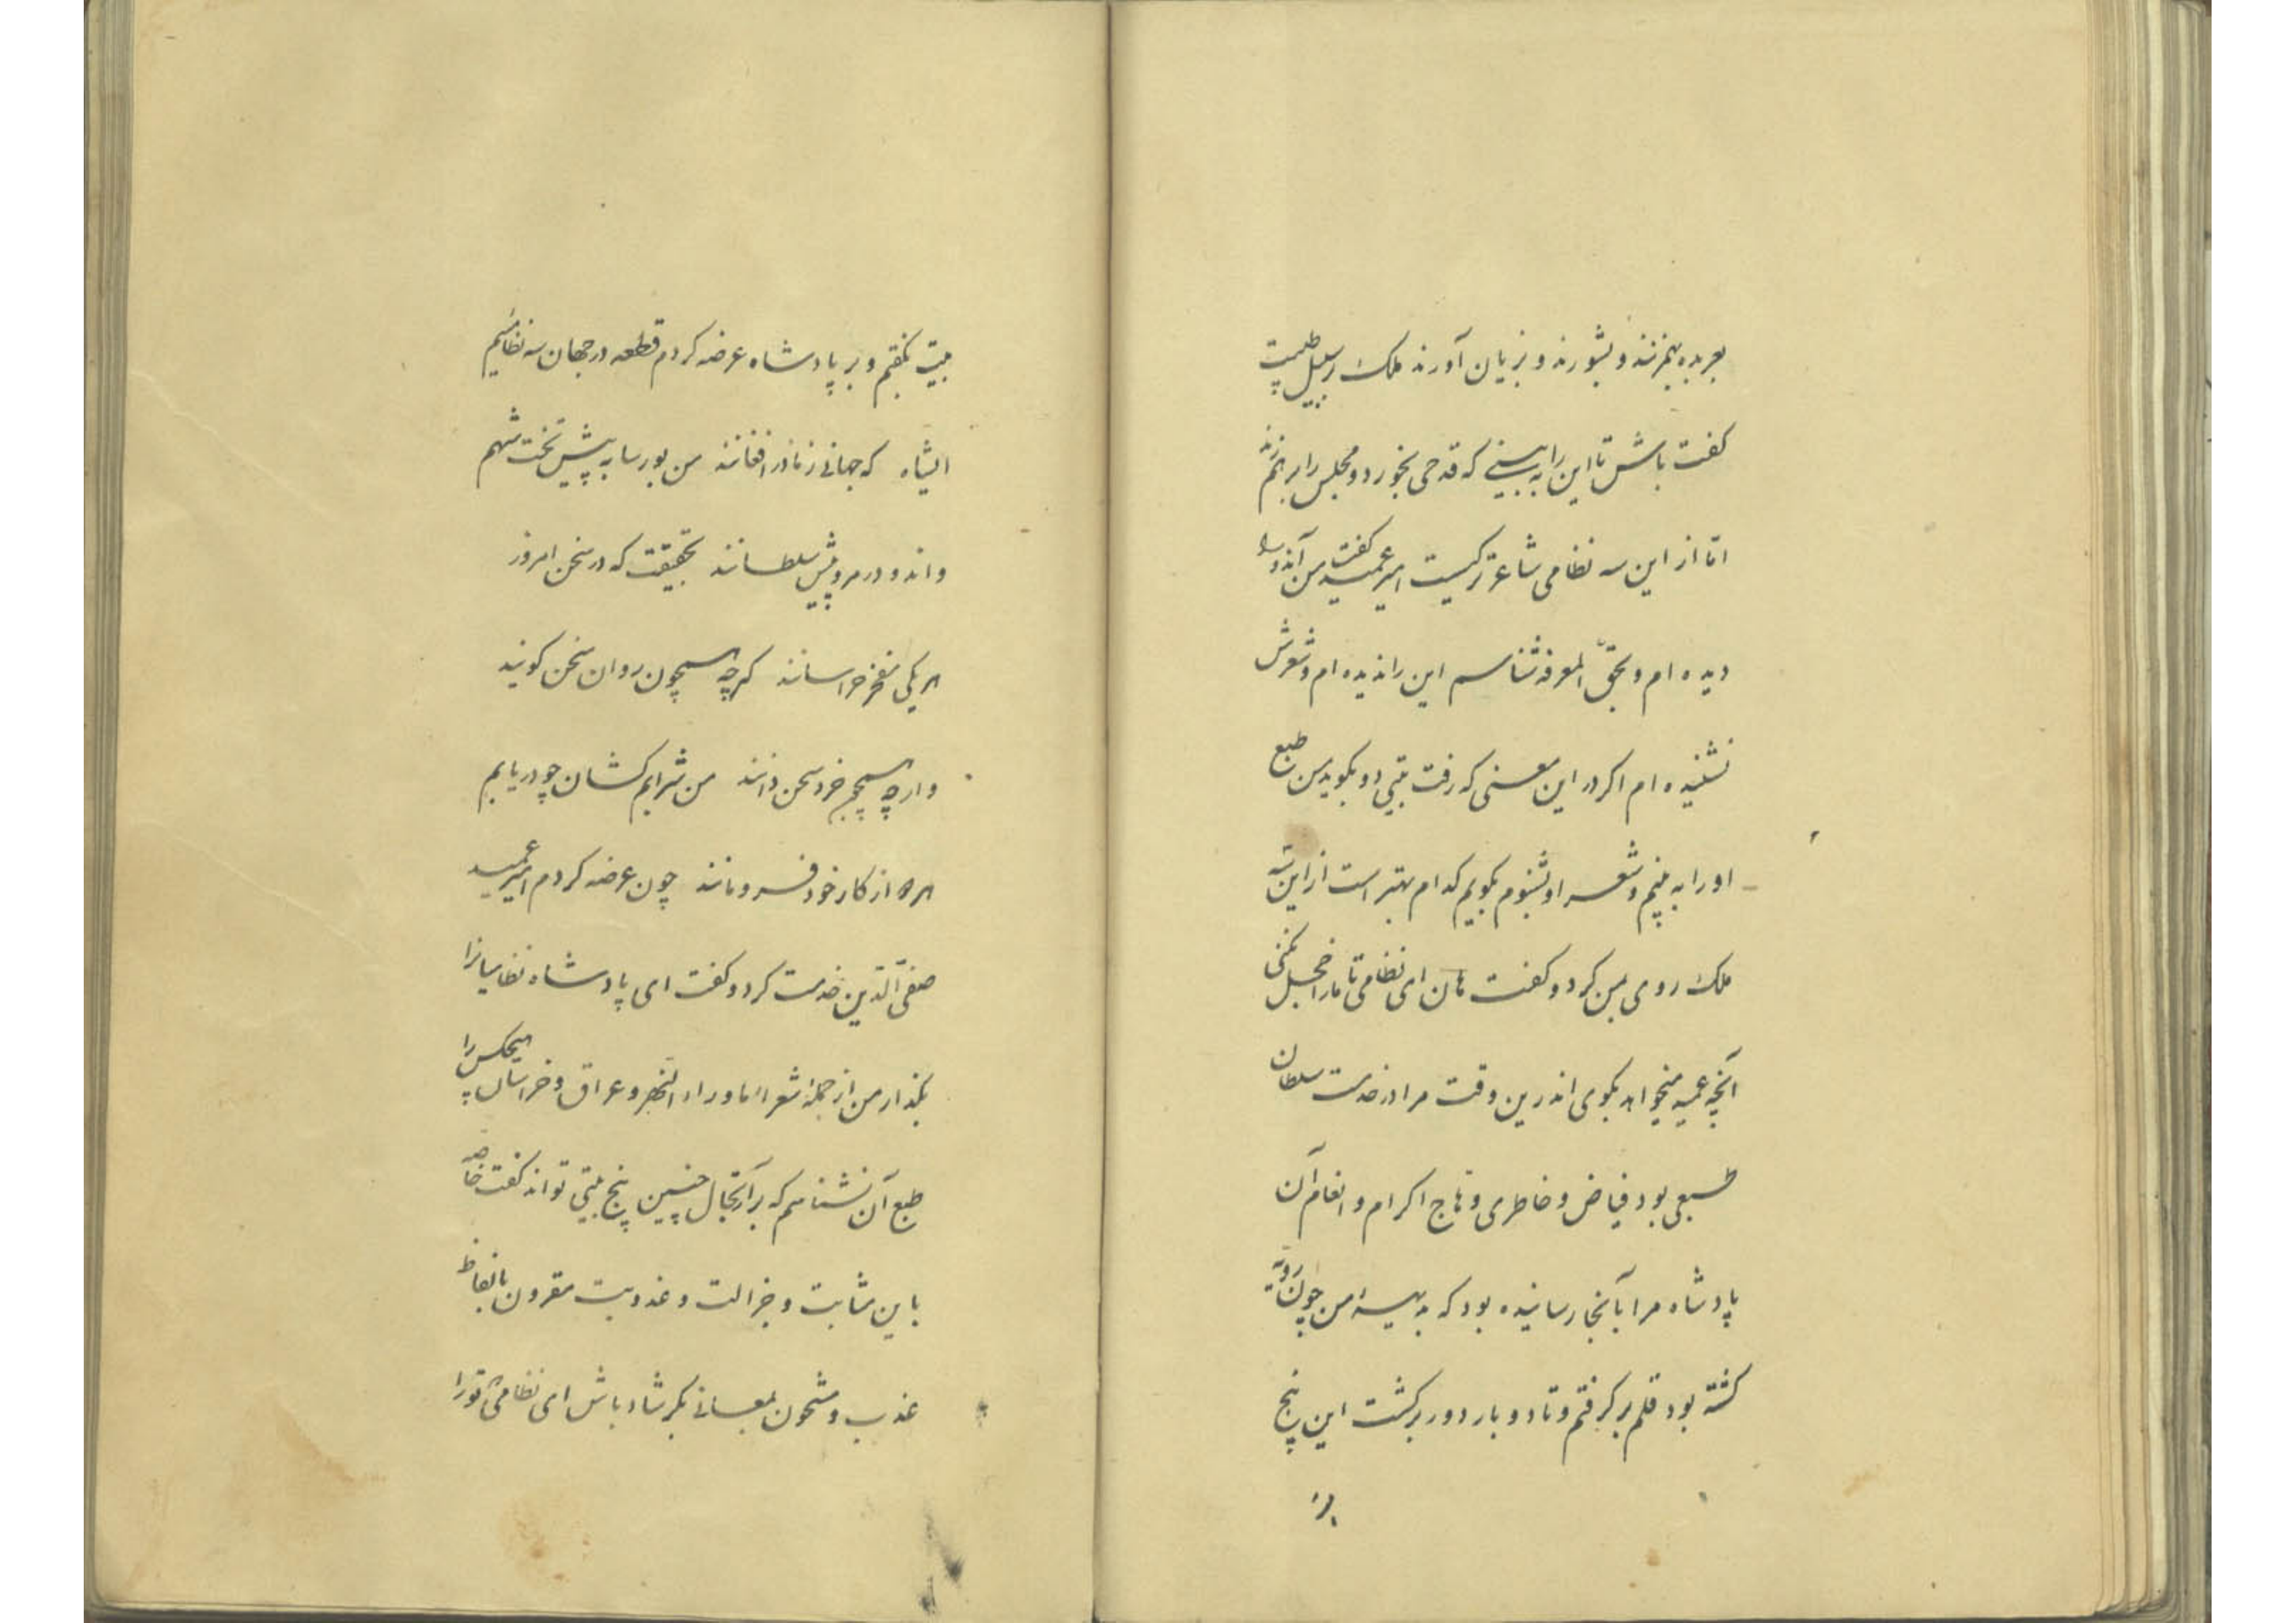 بعربده بهم زنند و بشورند و بزیان آورند ملک بر سبیل طیبت
گفت باش تا این را به بینی که قدحی بخورد و مجلس را برهم زند
اما از این سه نظامی شاعرتر کیست امیر عمید گفت من آن دو را
دیده ام و بحق المعرفه شناسم این را ندیده ام و شعرش
نشنیده ام اگر در این معنی که رفت بیتی دو بگوید من طبع
او را به بینم و شعر او بشنوم بگویم کدام بهتر است از این سه
ملک روی بمن کرد و گفت هان ای نظامی تا ما را خجل نکنی
آنچه عمید میخواهد بگوی اندرین وقت مرا در خدمت سلطان
طبعی بود فیاض و خاطری وهاج اکرام و انعام آن
پادشاه مرا بآنجا رسانیده بود که بدیههٔ من چون رویه
گشته بود قلم برگرفتم و تا دو بار دور برگشت این پنج
بیت بگفتم و بر پادشاه عرضه کردم قطعه در جهان سه نظامییم
ایشاه که جهانی ز ما در افغانند من بورسا به پیش تخت شهم
واندو در مرو پیش سلطانند بحقیقت که در سخن امروز
هر یکی مفخر خراسانند گرچه همچون روان سخن گویند
وارچه همچو خرد سخن دانند من شرابم کشان چو دریابم
هر دو از کار خود فرو مانند چون عرضه کردم امیر عمید
صفی الدین خدمت کرد و گفت ای پادشاه نظامیانرا
بگذار من از جمله شعراء ماوراء النهر و عراق و خراسان هیچکس را
طبع آن نشناسم که بر ارتجال چنین پنج بیتی تواند گفت خاصه
باین مثابت و جزالت و عذوبت مقرون بالفاظ
عذب و مشحون بمعانی بکر شاد باش ای نظامی تو را